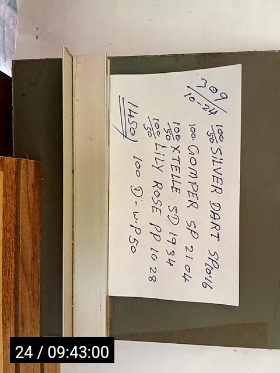 10-24
100/50 SILVER DART
100 GOMPER SP 2104
100/50 XTELLE SD 1934
100/50 LILY ROSE PP 1028
100 D - W.P50
1450/
24 / 09:43:00